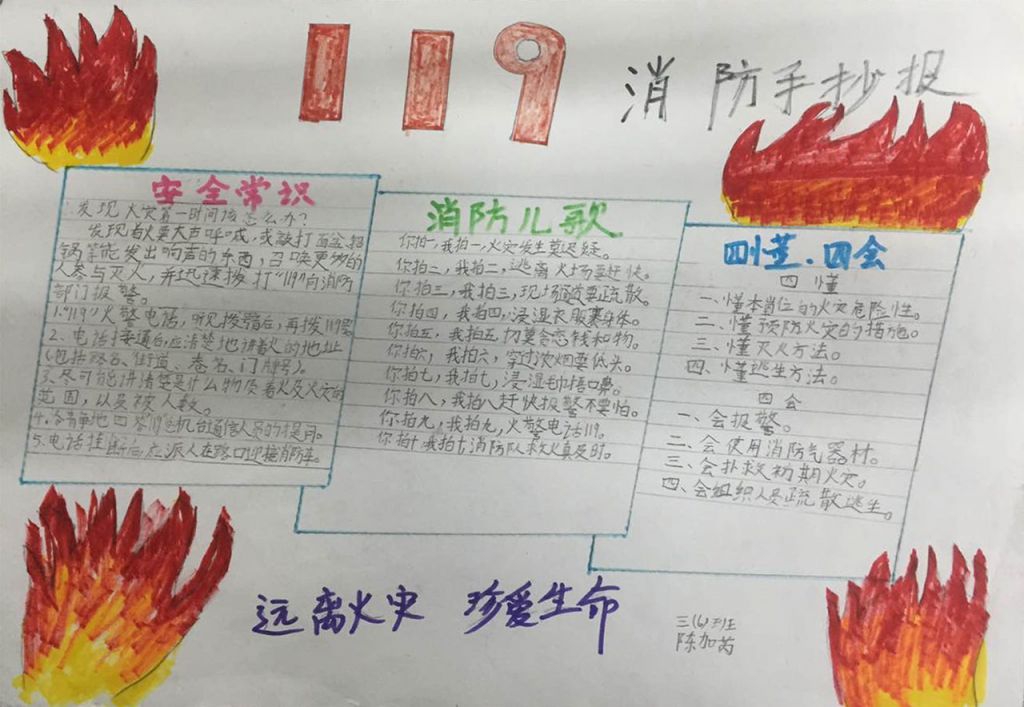 119
消防手抄报
安全常识
发现火灾第一时间该怎么办?
发现着火要大声呼喊,或敲打面盆、
锅等能发出响声的东西,召唤更多的
人参与灭火,并迅速拨打"119"向消防
部门报警。
1."119"火警电话,听见拨号音后,再拨119号
2、电话接通后,应清楚地讲着火的地址
(包括路名、街道、巷名、门牌号)。
3、尽可能讲清楚是什么物质着火及火灾的
范围,以及被人数。
4.冷静地回答119总机台通信人员的提问。
5.电话挂断后,应派人在路口迎接消防车。
消防儿歌
你拍一,我拍一,火灾发生莫迟疑。
你拍二,我拍二,逃离火场要赶快。
你拍三,我拍三,现场通道要疏散。
你拍四,我拍四,浸湿衣服裹身体。
你拍五,我拍五,切莫贪恋钱和物。
你拍六,我拍六,穿过浓烟要低头。
你拍七,我拍七,浸湿毛巾捂口鼻。
你拍八,我拍八,赶快报警不要怕。
你拍九,我拍九,火警电话119。
你拍十,我拍十,消防队救火真及时。
四懂、四会
四懂
一、懂本岗位的火灾危险性。
二、懂预防火灾的措施。
三、懂灭火方法。
四、懂逃生方法。
四会
一、会报警。
二、会使用消防器材。
三、会扑救初期火灾。
四、会组织人员疏散逃生。
远离火灾 珍爱生命
三(6)班
陈加芮